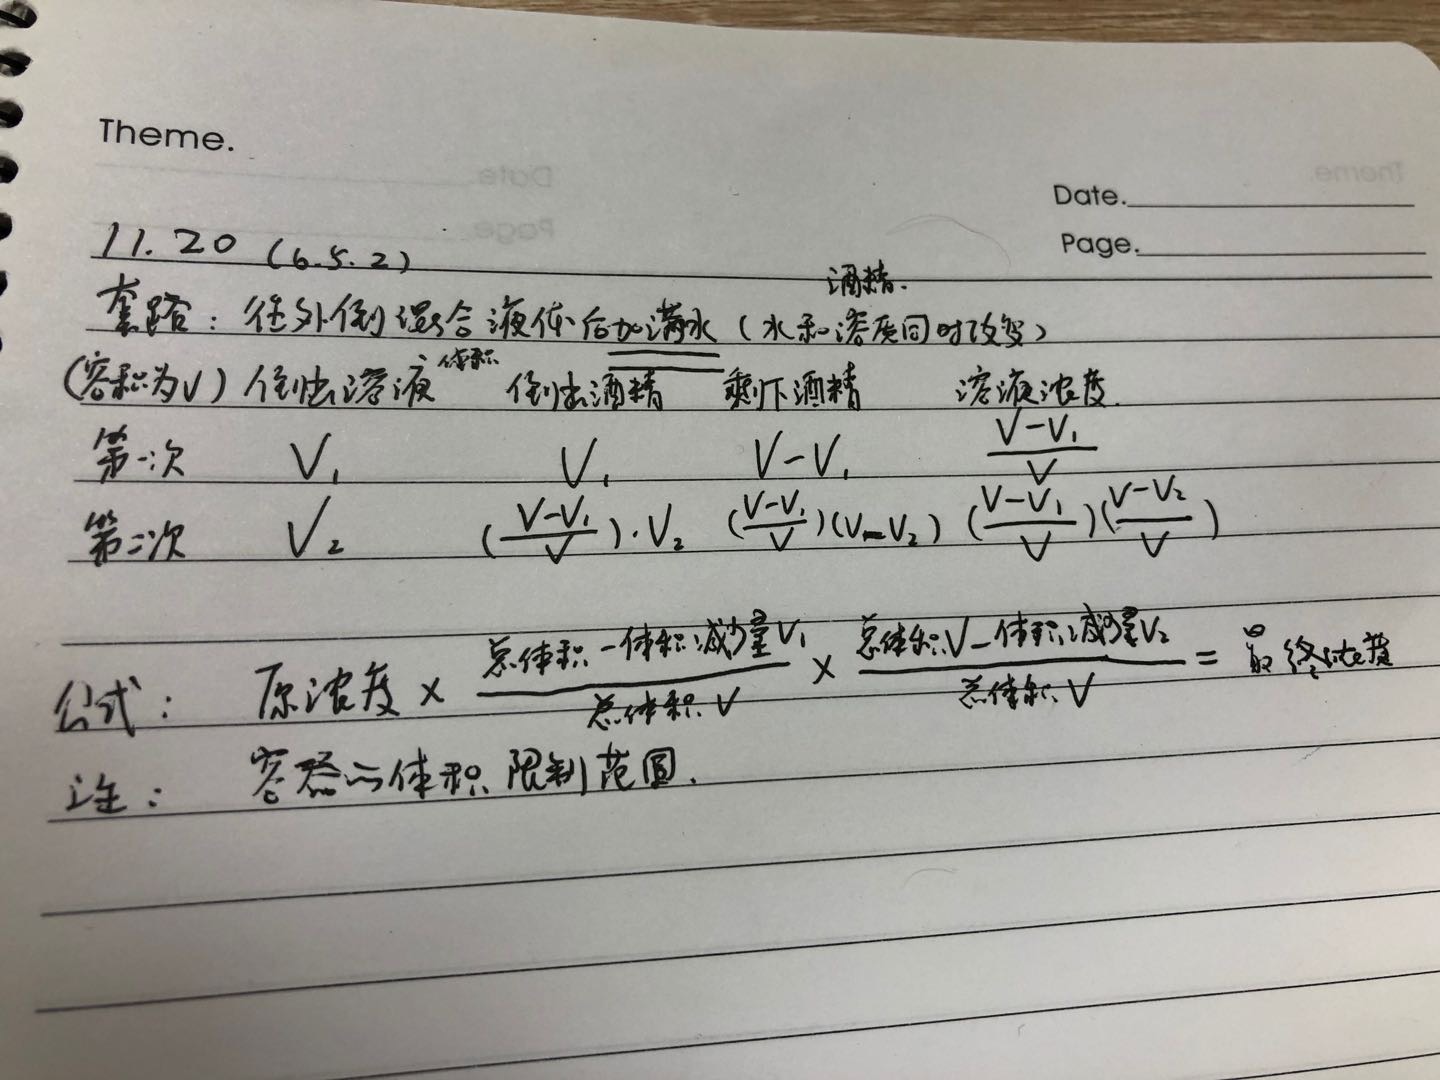 Theme.
Date.
Page.
11.20 (6.5.2)
酒精.
套路: 往外倒混合液体后加满水 (水和溶质同时改变)
(容积为V) 倒出溶液体积 倒出酒精 剩下酒精 溶液浓度.
第一次 V₁ V₁ V-V₁ (V-V₁)/V
第二次 V₂ ((V-V₁)/V)·V₂ ((V-V₁)/V)(V-V₂) ((V-V₁)/V)((V-V₂)/V)
公式: 原浓度 × (总体积-体积减少量V₁)/(总体积V) × (总体积V-体积减少量V₂)/(总体积V) = 最终浓度
注: 容器的体积限制范围.